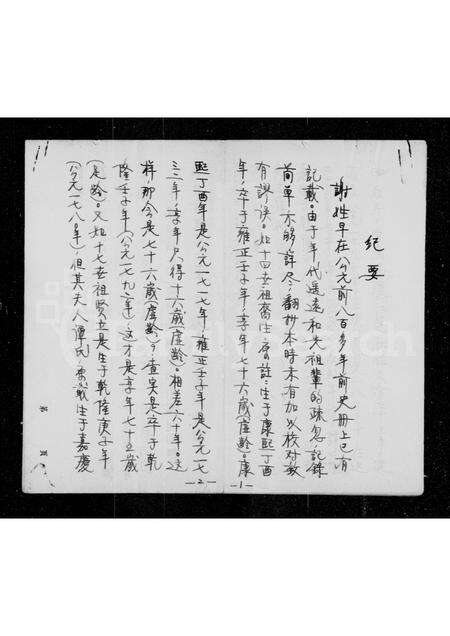 纪要
谢姓早在公元前八百多年前史册上已有
记载。由于年代遥远和先祖辈的疏忽,记录
简单不够详尽,翻抄本时未有加以校对故
有谬误。如十四世祖裔生 注:生于康熙丁酉
年,卒于雍正壬子年,享年七十六岁(虚龄)。康
—1—
熙丁酉年是公元一七一七年,雍正壬子年是公元一七
三二年,享年只得十六岁(虚龄)。相差六十年。这
样那会是七十六岁(虚龄)?查实是卒于乾
隆壬子年(公元一七九二年),这才是享年七十五岁
(足龄)。又如十七世祖贤立是生于乾隆庚子年
(公元一七八〇年),但其夫人谭氏 生于嘉庆
—2—
第 页